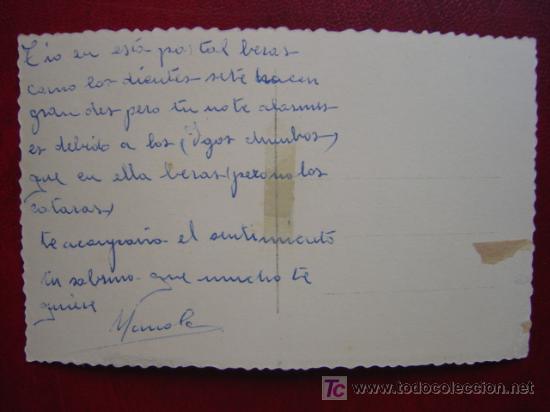 Tio en esta postal beras
como los dientes sete hacen
grandes pero tu no te alarmes
es debido a los (Igos chumbos)
que en ella beras (pero no los
cataras)
te acompaña el sentimiento
tu sobrino que mucho te
quiere
Manolo
TC todocoleccion
www.todocoleccion.net